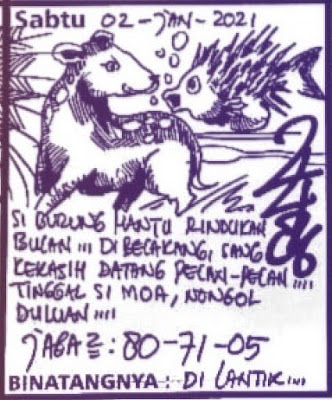 Sabtu 02-JAN-2021
86
SI BURUNG HANTU RINDUKAN
BULAN ,,, DIBELAKANG, SANG
KEKASIH DATANG PELAN-PELAN ,,,,
TINGGAL SI MOA, NONGOL
DULUAN ,,,,
JAGA2 : 80-71-05
BINATANGNYA : DI LANTIK ,,,